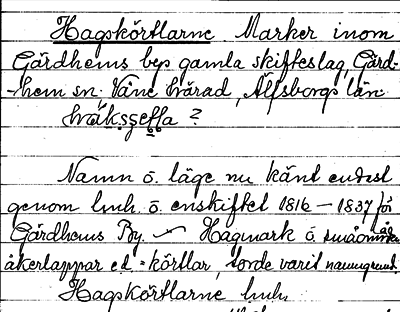 Hagskörtlarne Marker inom
Gärdhems bys gamla skifteslag, Gärd-
-hem sn. Väne härad, Älfsborgs län
?
Namn o. läge nu känt endast
genom lmh. o. enskiftet 1816 – 1837 för
Gärdhems By. – Hagmark o. små
åkerlappar e.d. = körtlar, torde varit namngrund.
Hagskörtlarne lmh.